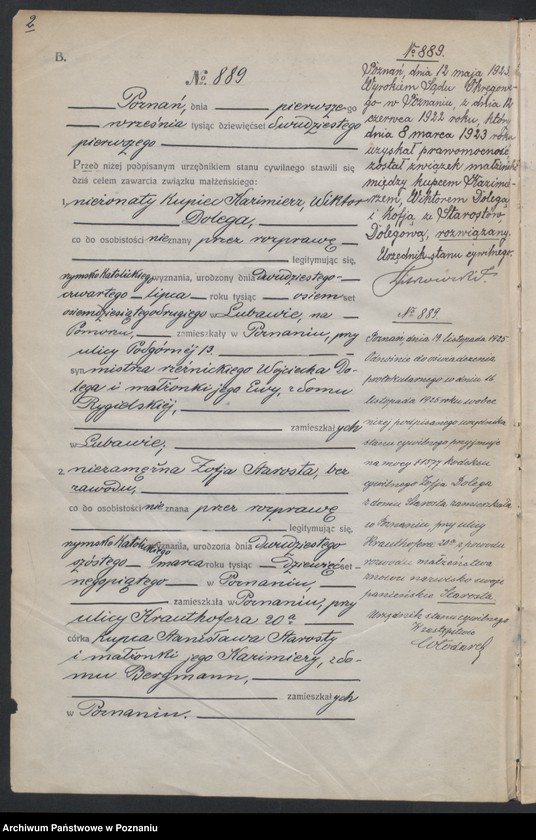 2
B.
№ 889
Poznań, dnia pierwszego
września tysiąc dziewięćset dwudziestego
pierwszego
Przed niżej podpisanym urzędnikiem stanu cywilnego stawili się
dziś celem zawarcia związku małżeńskiego:
1. nieżonaty kupiec Kazimierz, Wiktor
Dolega,
co do osobistości nieznany przez rozprawę
legitymując się,
rzymsko katolickiego wyznania, urodzony dnia dwudziestego
czwartego lipca roku tysiąc osiemset
osiemdziesiątego drugiego w Lubawie, na
Pomorzu, zamieszkały w Poznaniu, przy
ulicy Podgórnej 13
syn mistrza rzeźnickiego Wojciecha Do-
lega i małżonki jego Ewy, z domu
Rygielskiej,
zamieszkałych
w Lubawie;
2 niezamężna Zofja Starosta, bez
zawodu,
co do osobistości nieznana przez rozprawę
legitymując się,
rzymsko katolickiego wyznania, urodzona dnia dwudziestego
szóstego marca roku tysiąc dziewięćset
piątego w Poznaniu,
zamieszkała w Poznaniu, przy
ulicy Krauthofera 20a
córka kupca Stanisława Starosty
i małżonki jego Kazimiery, z do-
mu Bergmann,
zamieszkałych
w Poznaniu.
№ 889.
Poznań, dnia 12 maja 1923.
Wyrokiem Sądu Okręgowe-
go w Poznaniu, z dnia 12
czerwca 1922 roku, który
dnia 8 marca 1923 roku
uzyskał prawomocność
został związek małżeński
między kupcem Kazimie-
rzem, Wiktorem Dolegą
i Zofją ze Starostów
Dolegową, rozwiązany.
Urzędnik stanu cywilnego.
№ 889.
Poznań, dnia 19 listopada 1925.
Odnośnie do oświadczenia
protokularnego z dnia 16
listopada 1925 roku wobec
niżej podpisanego urzędnika
stanu cywilnego, przyjmuje
na mocy § 1577 kodeksu
cywilnego Zofja Dolega
z domu Starosta zamieszkała
w Poznaniu przy ulicy
Krauthofera 20a z powodu
rozwodu małżeństwa
znowu nazwisko swoje
panieńskie Starosta
Urzędnik stanu cywilnego
W zastępstwie
Archiwum Państwowe w Poznaniu